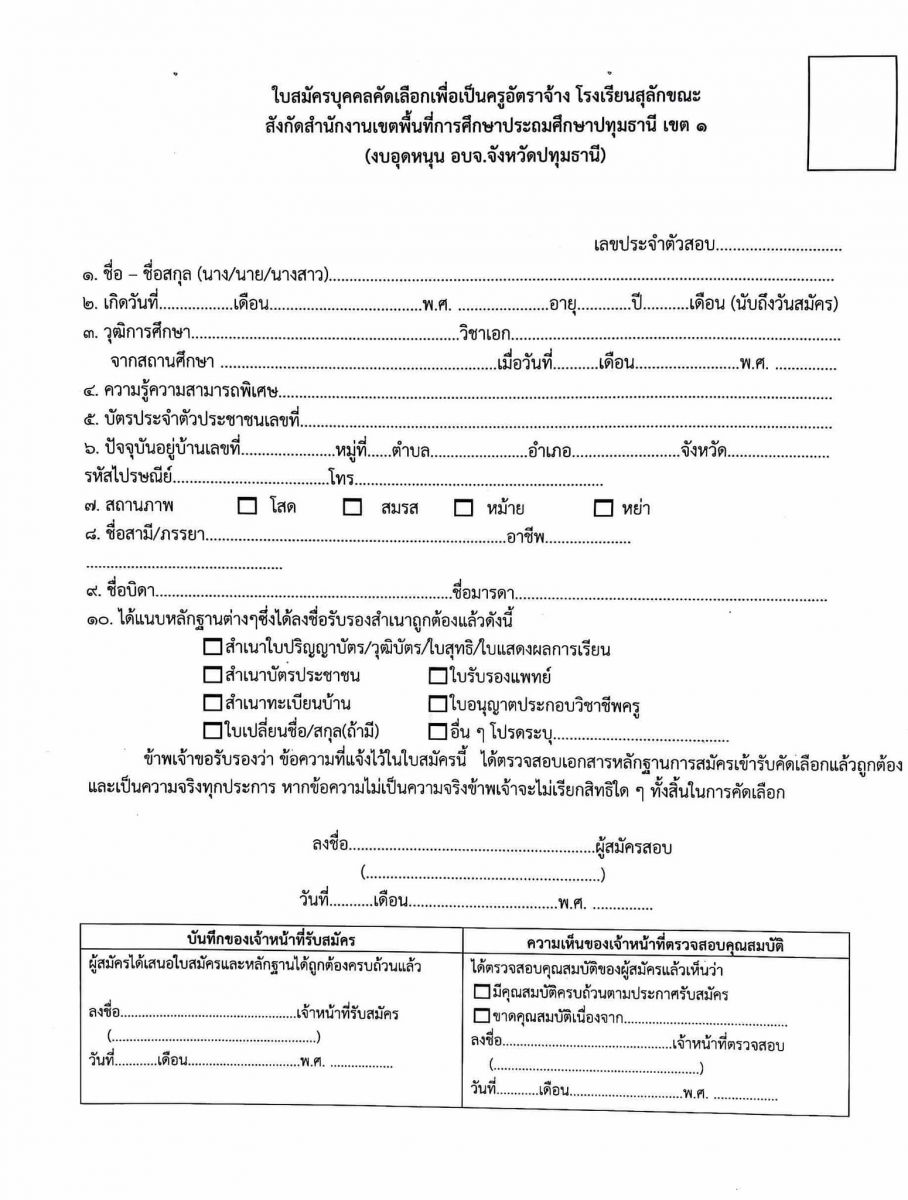 ใบสมัครบุคคลคัดเลือกเพื่อเป็นครูอัตราจ้าง โรงเรียนสุลักขณะ
สังกัดสำนักงานเขตพื้นที่การศึกษาประถมศึกษาปทุมธานี เขต ๑
(งบอุดหนุน อบจ.จังหวัดปทุมธานี)
เลขประจำตัวสอบ..............................
๑. ชื่อ – ชื่อสกุล (นาง/นาย/นางสาว)..............................
๒. เกิดวันที่.................เดือน....................................พ.ศ. .....................อายุ............ปี...........เดือน (นับถึงวันสมัคร)
๓. วุฒิการศึกษา..............................วิชาเอก..............................
จากสถานศึกษา ..............................เมื่อวันที่...........เดือน.........................พ.ศ. ...............
๔. ความรู้ความสามารถพิเศษ..............................
๕. บัตรประจำตัวประชาชนเลขที่..............................
๖. ปัจจุบันอยู่บ้านเลขที่......................หมู่ที่......ตำบล.......................อำเภอ..........................จังหวัด.........................
รหัสไปรษณีย์.....................................โทร..............................
๗. สถานภาพ ☐ โสด ☐ สมรส ☐ หม้าย ☐ หย่า
๘. ชื่อสามี/ภรรยา..............................อาชีพ.....................
...............................................
๙. ชื่อบิดา..............................ชื่อมารดา..............................
๑๐. ได้แนบหลักฐานต่างๆซึ่งได้ลงชื่อรับรองสำเนาถูกต้องแล้วดังนี้
☐สำเนาใบปริญญาบัตร/วุฒิบัตร/ใบสุทธิ/ใบแสดงผลการเรียน
☐สำเนาบัตรประชาชน ☐ใบรับรองแพทย์
☐สำเนาทะเบียนบ้าน ☐ใบอนุญาตประกอบวิชาชีพครู
☐ใบเปลี่ยนชื่อ/สกุล(ถ้ามี) ☐อื่น ๆ โปรดระบุ..............................
ข้าพเจ้าขอรับรองว่า ข้อความที่แจ้งไว้ในใบสมัครนี้ ได้ตรวจสอบเอกสารหลักฐานการสมัครเข้ารับคัดเลือกแล้วถูกต้อง
และเป็นความจริงทุกประการ หากข้อความไม่เป็นความจริงข้าพเจ้าจะไม่เรียกสิทธิใด ๆ ทั้งสิ้นในการคัดเลือก
ลงชื่อ..............................ผู้สมัครสอบ
(..............................)
วันที่...........เดือน...................................พ.ศ. ..............
บันทึกของเจ้าหน้าที่รับสมัคร
ผู้สมัครได้เสนอใบสมัครและหลักฐานได้ถูกต้องครบถ้วนแล้ว
ลงชื่อ..............................เจ้าหน้าที่รับสมัคร
(..............................)
วันที่...........เดือน...........................พ.ศ. ...............
ความเห็นของเจ้าหน้าที่ตรวจสอบคุณสมบัติ
ได้ตรวจสอบคุณสมบัติของผู้สมัครแล้วเห็นว่า
☐มีคุณสมบัติครบถ้วนตามประกาศรับสมัคร
☐ขาดคุณสมบัติเนื่องจาก..............................
ลงชื่อ..............................เจ้าหน้าที่ตรวจสอบ
(..............................)
วันที่...........เดือน...........................พ.ศ. ...............